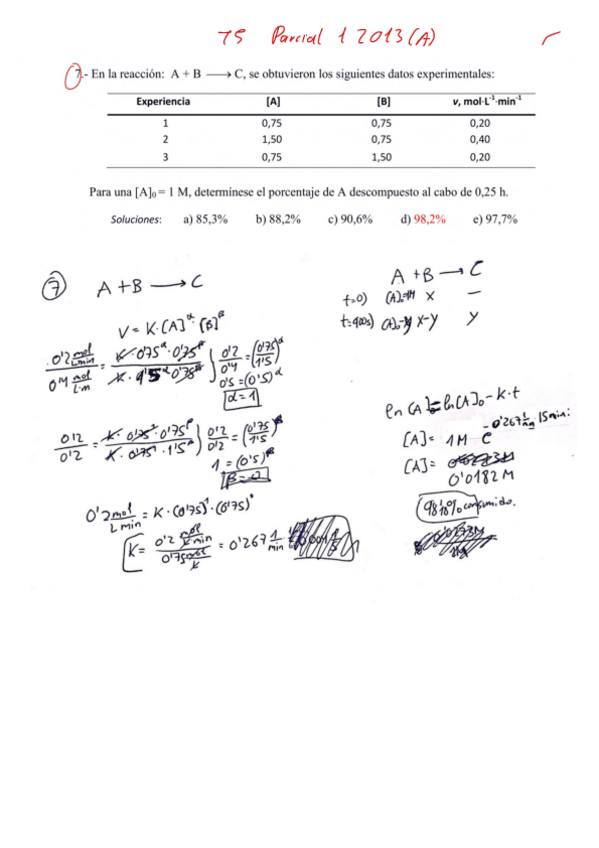 T5 Parcial 1 2013 (A)
7.- En la reacción: A + B ⟶ C, se obtuvieron los siguientes datos experimentales:
Experiencia [A] [B] v, mol·L⁻¹·min⁻¹
1 0,75 0,75 0,20
2 1,50 0,75 0,40
3 0,75 1,50 0,20
Para una [A]₀ = 1 M, determínese el porcentaje de A descompuesto al cabo de 0,25 h.
Soluciones: a) 85,3% b) 88,2% c) 90,6% d) 98,2% e) 97,7%
7 A + B ⟶ C
V = K·[A]^α·[B]^β
0'2 mol/L min / 0'4 mol/L·m = K·0'75^α·0'75^β / K·1'5^α·0'75^β } 0'2/0'4 = (0'75/1'5)^α
0'5 = (0'5)^α
α = 1
0'2/0'2 = K·0'75^1·0'75^β / K·0'75^1·1'5^β } 0'2/0'2 = (0'75/1'5)^β
1 = (0'5)^β
β = 0
0'2 mol/L min = K·(0'75)^1·(0'75)^0
K = 0'2 mol/L min / 0'75 mol/L = 0'267 1/min
A + B ⟶ C
t=0) [A]₀=1M x —
t=900s) [A]₀-y x-y y
ln [A] = ln[A]₀ - K·t
[A] = 1M · e^-0'267 1/min 15 min
[A] =
0'0182 M
98'18% consumido.